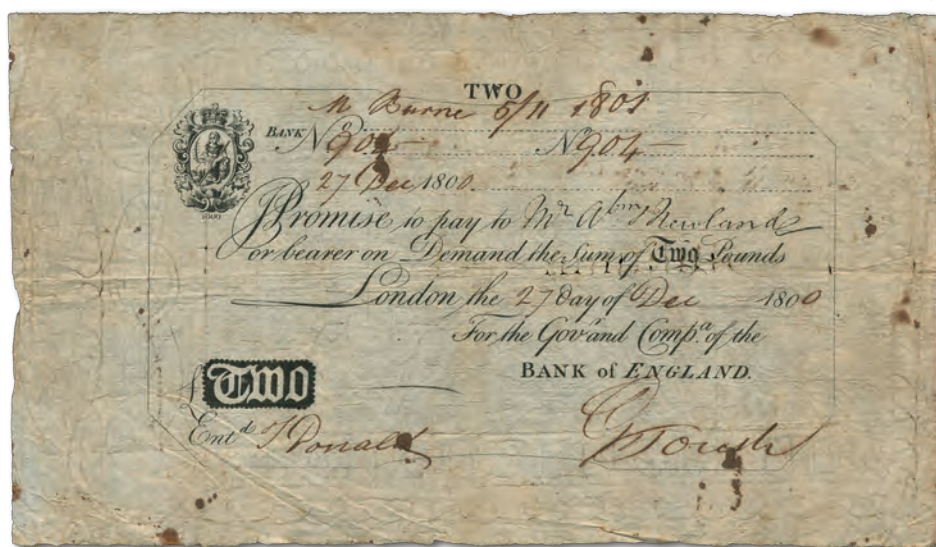 TWO
M Burne 5/11 1801
BANK No 904 No 904
27 Dec 1800
I Promise to pay to Mr Abm Newland
or bearer on Demand the Sum of Two Pounds
London the 27 day of Dec 1800
For the Govr and Compa of the
BANK of ENGLAND.
£ TWO
Entd Donald